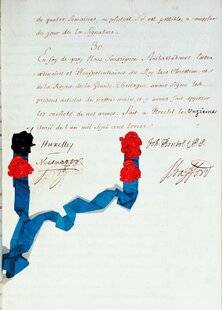 de quatre Semaines, ou plutost s'il est possible, a compter
du jour de la Signature.
30
En foy de quoy Nous Sousignez Ambassadeurs Extra-
ordinaires et Plenipotentiaires du Roy tres Chrestien, et
de la Reyne de la Grande Bretagne avons signé les
presens articles de nostre main, et y avons fait apposer
les cachets de nos armes. Fait a Utrecht le Onzieme
avril de l'an mil sept cent treize.
Huxelles
Joh. Bristol. C.P.S.
Mesnager
Strafford